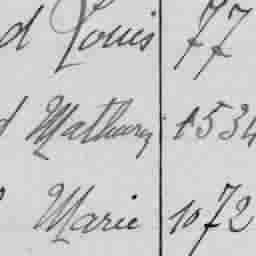 d Louis 77
d Mathurin 1534
Marie 1072